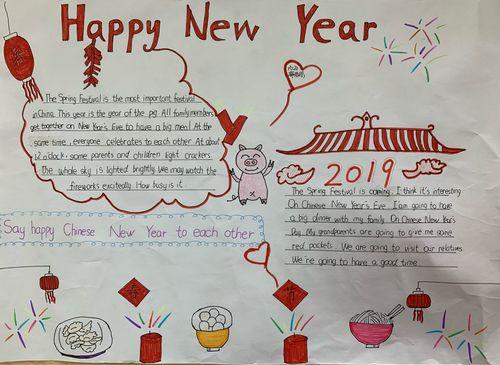 Happy New Year
The Spring Festival is the most important festival
in China. This year is the year of the pig. All family members
get together on New Year's Eve to have a big meal. At the
same time, everyone celebrates to each other. At about
12 o'clock, some parents and children light crackers.
The whole sky is lighted brightly. We may watch the
fireworks excitedly. How busy it is.
Say happy Chinese New Year to each other
2019
The Spring Festival is coming. I think it's interesting
On Chinese New Year's Eve. I am going to have
a big dinner with my family. On Chinese New Year's
Day. My grandparents are going to give me some
red packets. We are going to visit our relatives
We're going to have a good time
春